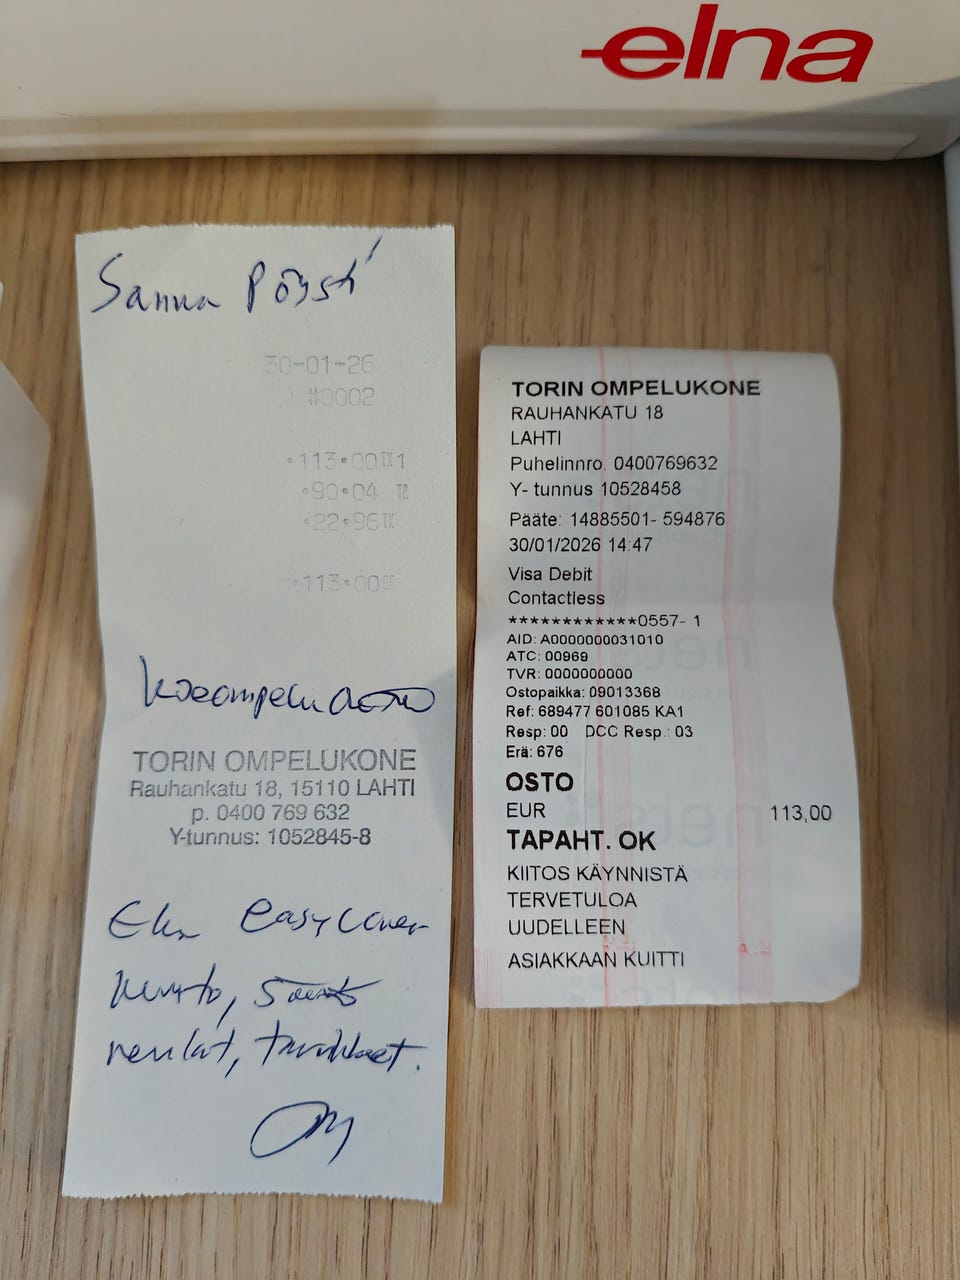 elna
Sanna Pöysti
30-01-26
#0002
•113•00TX1
•90•04
•22•96TX
•113•00
TORIN OMPELUKONE
Rauhankatu 18, 15110 LAHTI
p. 0400 769 632
Y-tunnus: 1052845-8
easycover
huolto, säätö
neulat, tarvikkeet.
TORIN OMPELUKONE
RAUHANKATU 18
LAHTI
Puhelinnro. 0400769632
Y- tunnus 10528458
Pääte: 14885501- 594876
30/01/2026 14:47
Visa Debit
Contactless
************0557- 1
AID: A0000000031010
ATC: 00969
TVR: 0000000000
Ostopaikka: 09013368
Ref: 689477 601085 KA1
Resp: 00 DCC Resp.: 03
Erä: 676
OSTO
EUR 113,00
TAPAHT. OK
KIITOS KÄYNNISTÄ
TERVETULOA
UUDELLEEN
ASIAKKAAN KUITTI